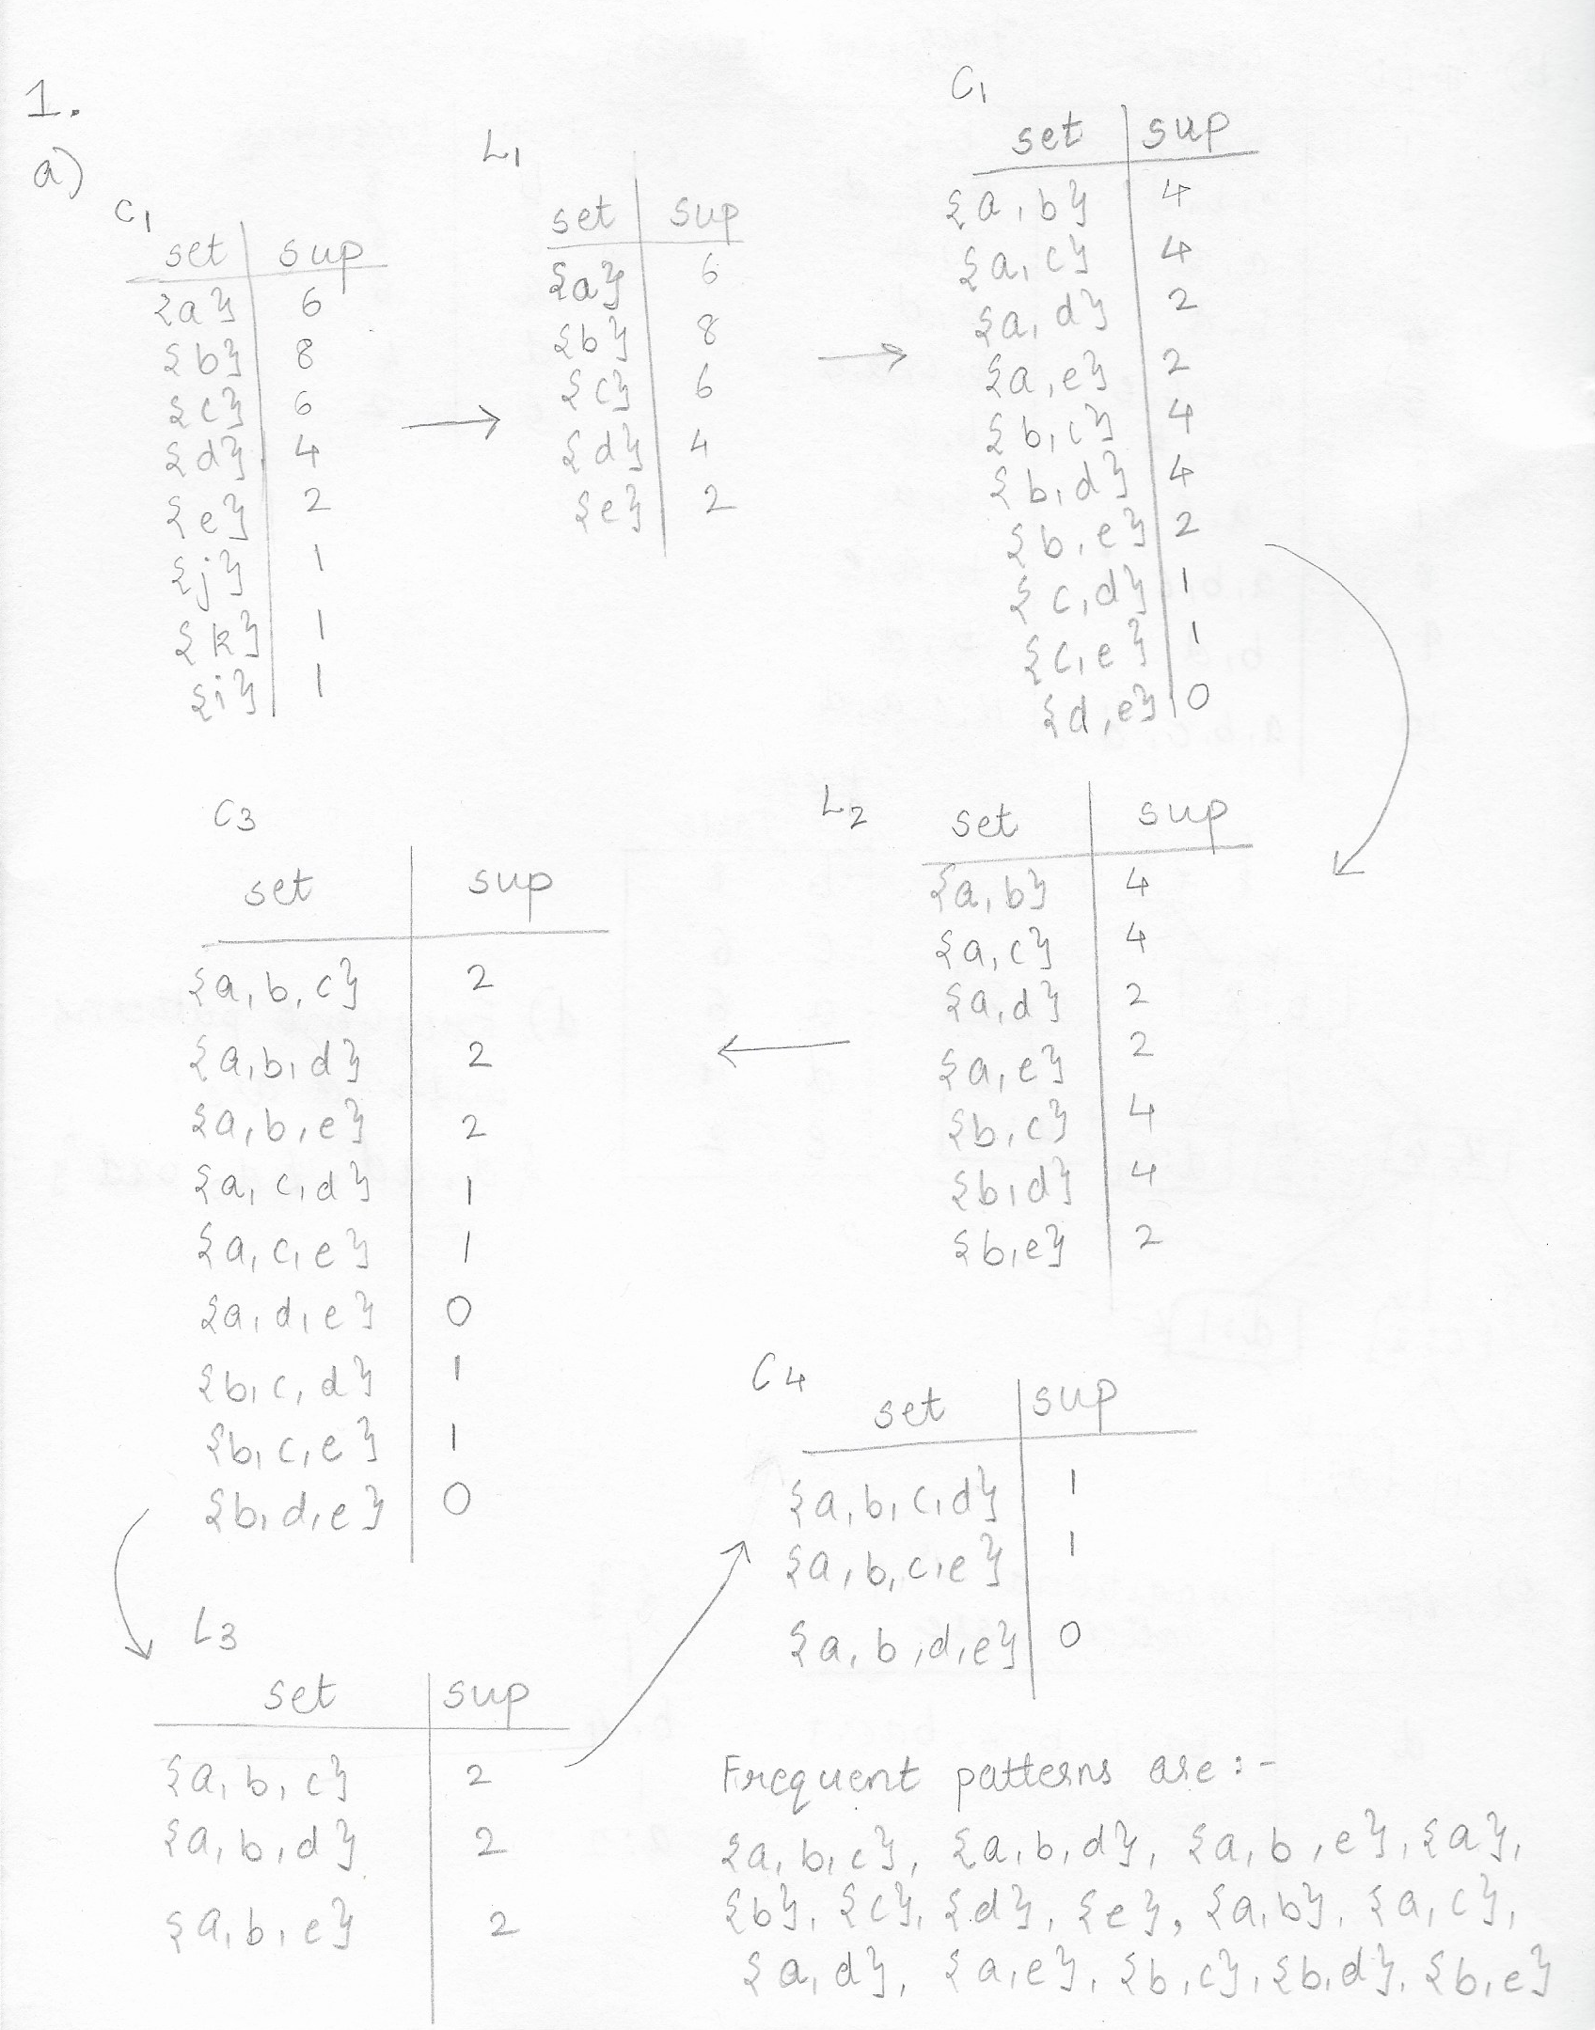 1.
a)
C1
set sup
{a} 6
{b} 8
{c} 6
{d} 4
{e} 2
{j} 1
{k} 1
{i} 1
L1
set sup
{a} 6
{b} 8
{c} 6
{d} 4
{e} 2
C1
set sup
{a,b} 4
{a,c} 4
{a,d} 2
{a,e} 2
{b,c} 4
{b,d} 4
{b,e} 2
{c,d} 1
{c,e} 1
{d,e} 0
L2
set sup
{a,b} 4
{a,c} 4
{a,d} 2
{a,e} 2
{b,c} 4
{b,d} 4
{b,e} 2
C3
set sup
{a,b,c} 2
{a,b,d} 2
{a,b,e} 2
{a,c,d} 1
{a,c,e} 1
{a,d,e} 0
{b,c,d} 1
{b,c,e} 1
{b,d,e} 0
L3
set sup
{a,b,c} 2
{a,b,d} 2
{a,b,e} 2
C4
set sup
{a,b,c,d} 1
{a,b,c,e} 1
{a,b,d,e} 0
Frequent patterns are:-
{a,b,c}, {a,b,d}, {a,b,e}, {a},
{b}, {c}, {d}, {e}, {a,b}, {a,c},
{a,d}, {a,e}, {b,c}, {b,d}, {b,e}